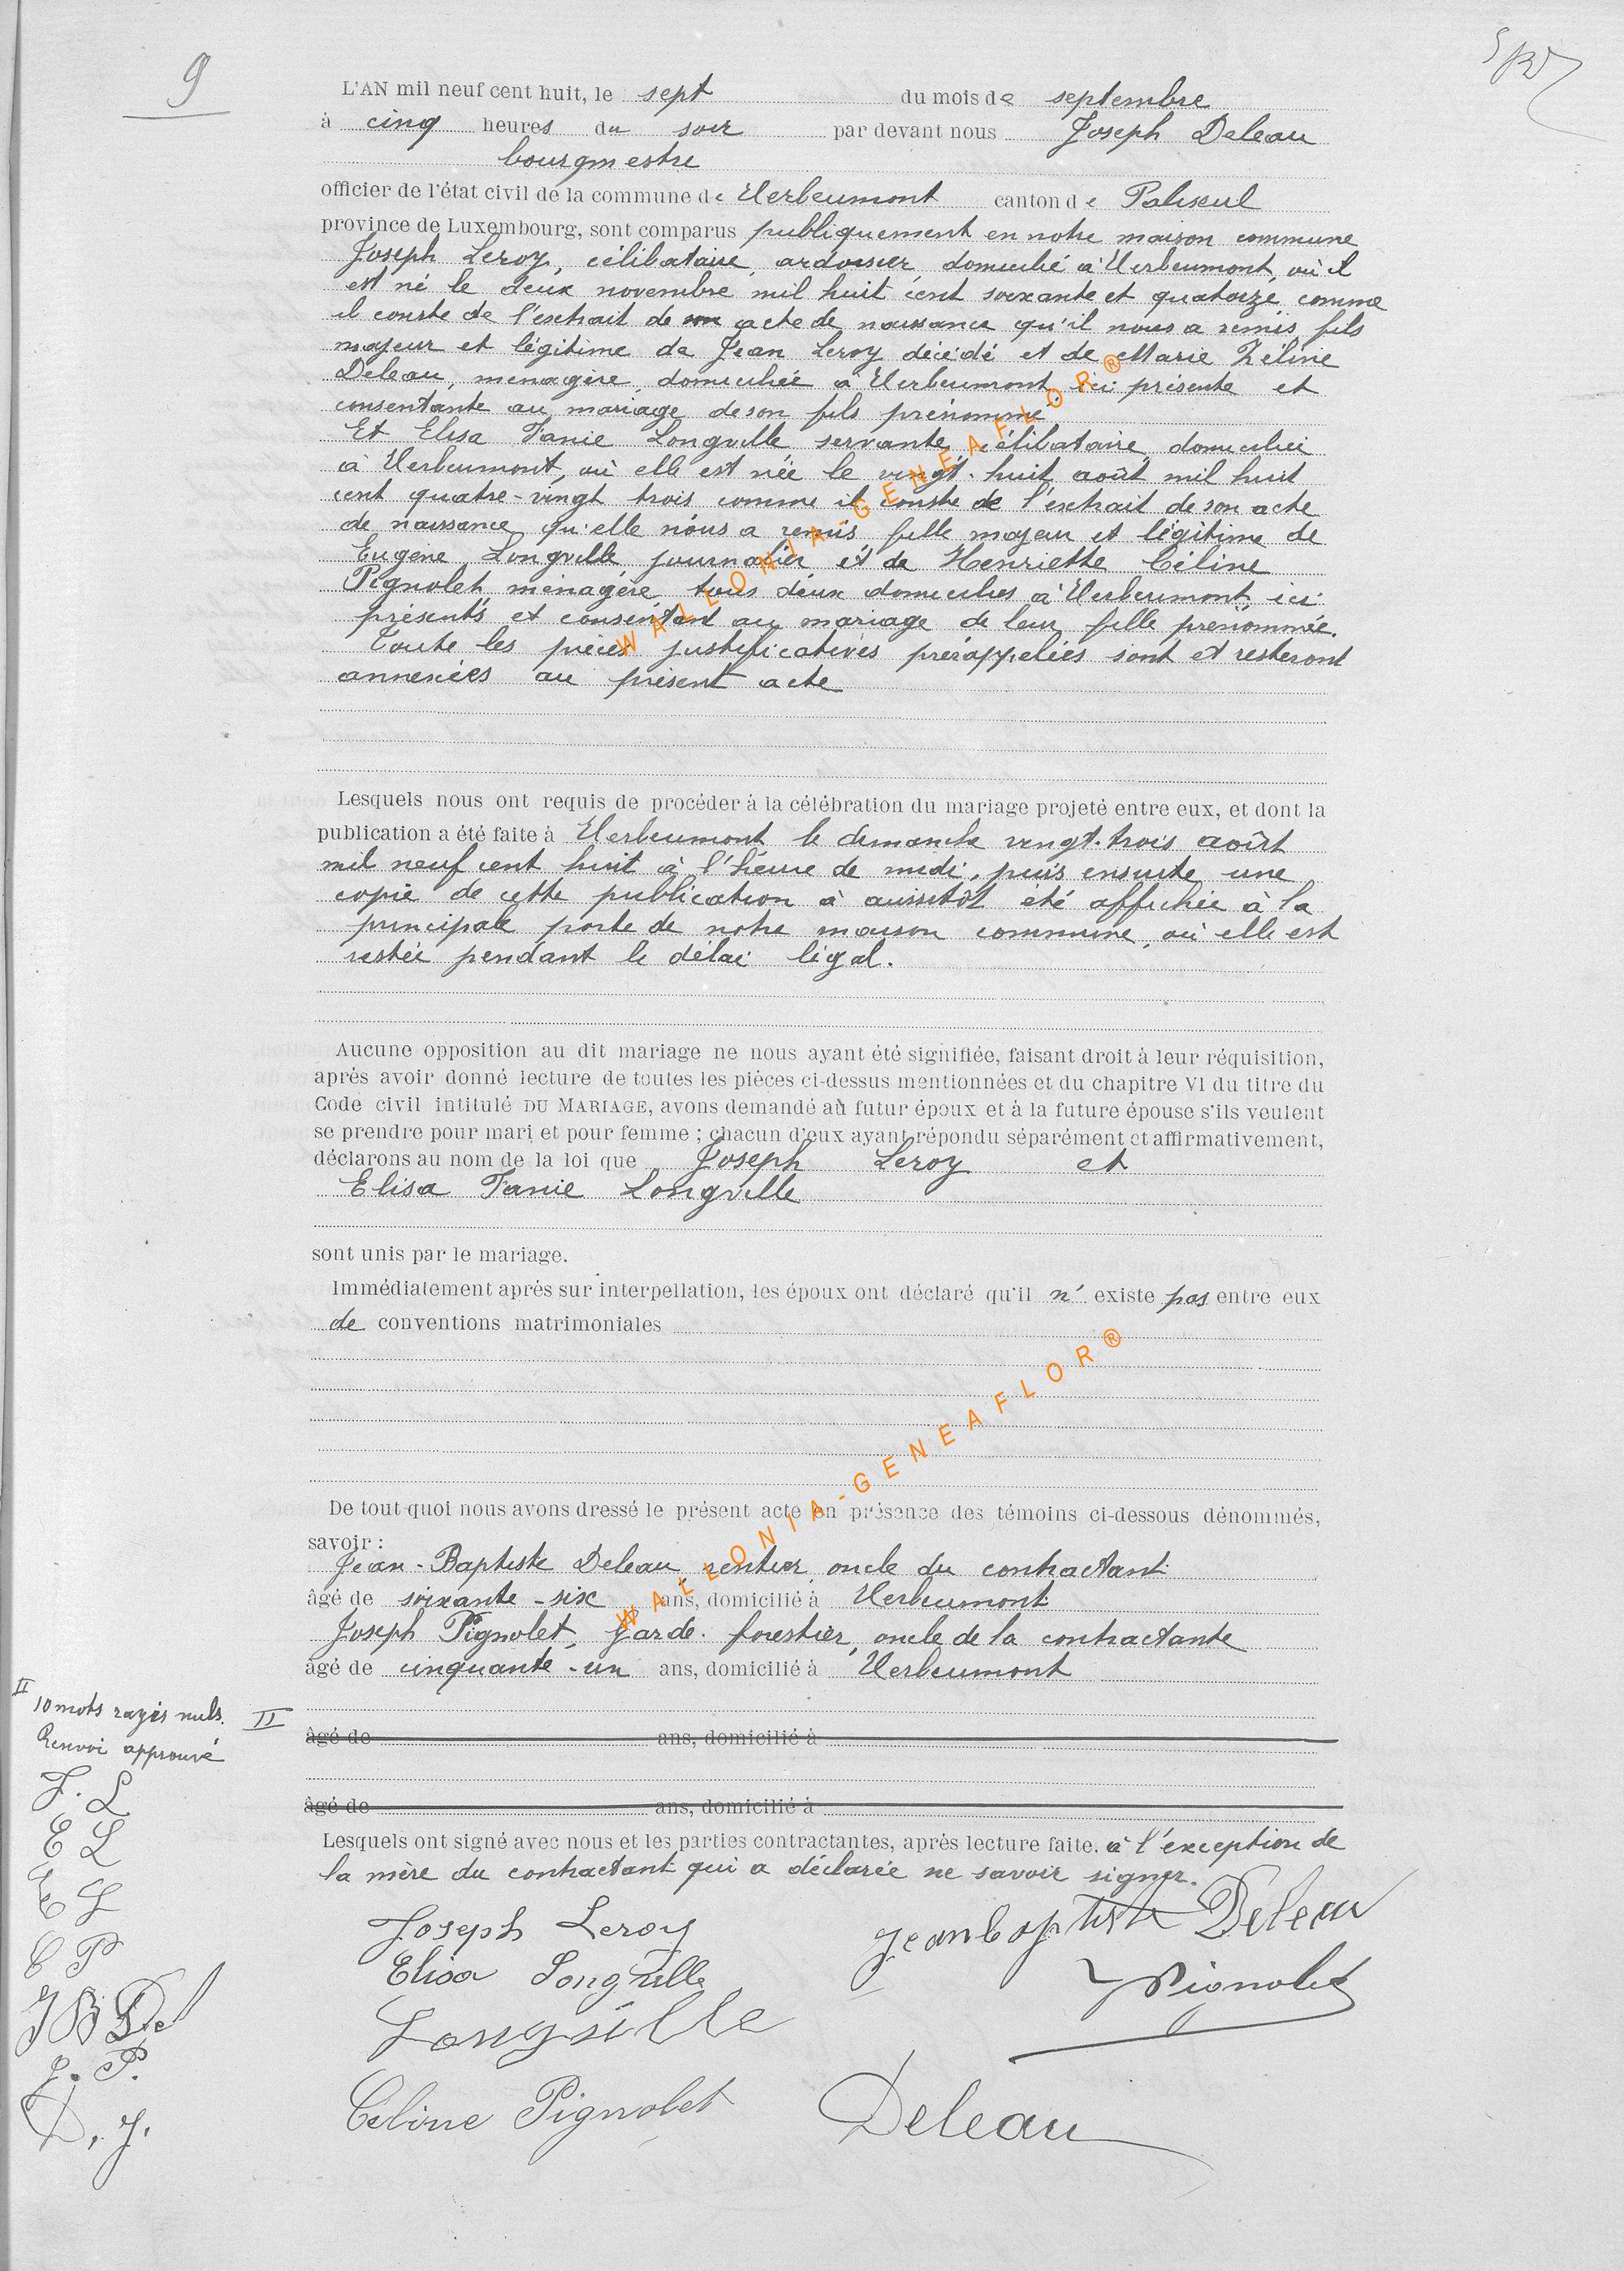 9
L'AN mil neuf cent huit, le sept du mois de septembre
à cinq heures du soir par devant nous Joseph Deleau
bourgmestre
officier de l'état civil de la commune de Herbeumont canton de Paliseul
province de Luxembourg, sont comparus publiquement en notre maison commune
Joseph Leroy, célibataire, ardoisier, domicilié à Herbeumont, où il
est né le deux novembre mil huit cent soixante et quatorze comme
il conste de l'extrait de son acte de naissance qu'il nous a remis, fils
majeur et légitime de Jean Leroy décédé et de Marie Zéline
Deleau, ménagère, domiciliée à Herbeumont ici présente et
consentante au mariage de son fils prénommé.
Et Elisa Fanie Longville servante, célibataire, domiciliée
à Herbeumont, où elle est née le vingt-huit août mil huit
cent quatre-vingt trois comme il conste de l'extrait de son acte
de naissance qu'elle nous a remis, fille majeur et légitime de
Eugène Longville journalier et de Henriette Céline
Pignolet ménagère tous deux domiciliés à Herbeumont, ici
présents et consentant au mariage de leur fille prénommée.
Toute les pièces justificatives prérappelées sont et resteront
annexées au présent acte
Lesquels nous ont requis de procéder à la célébration du mariage projeté entre eux, et dont la
publication a été faite à Herbeumont le dimanche vingt-trois août
mil neuf cent huit à l'heure de midi, puis ensuite une
copie de cette publication à aussitôt été affichée à la
principale porte de notre maison commune, où elle est
restée pendant le délai légal.
Aucune opposition au dit mariage ne nous ayant été signifiée, faisant droit à leur réquisition,
après avoir donné lecture de toutes les pièces ci-dessus mentionnées et du chapitre VI du titre du
Code civil intitulé DU MARIAGE, avons demandé au futur époux et à la future épouse s'ils veulent
se prendre pour mari et pour femme ; chacun d'eux ayant répondu séparément et affirmativement,
déclarons au nom de la loi que Joseph Leroy et
Elisa Fanie Longville
sont unis par le mariage.
Immédiatement après sur interpellation, les époux ont déclaré qu'il n' existe pas entre eux
de conventions matrimoniales
De tout quoi nous avons dressé le présent acte en présence des témoins ci-dessous dénommés,
savoir :
Jean-Baptiste Deleau, rentier, oncle du contractant
âgé de soixante-six ans, domicilié à Herbeumont
Joseph Pignolet, garde-forestier, oncle de la contractante
âgé de cinquante-un ans, domicilié à Herbeumont
II
10 mots rayés nuls.
Renvoi approuvé
II
âgé de ans, domicilié à
âgé de ans, domicilié à
Lesquels ont signé avec nous et les parties contractantes, après lecture faite. à l'exception de
la mère du contractant qui a déclarée ne savoir signer.
J. L
E L
E L
C P
J B De
J. P.
D. J.
Joseph Leroy
Jeanbaptiste Deleau
Elisa Longville
Pignolet
Longville
Céline Pignolet
Deleau
WALLONIA-GENEAFLOR®
WALLONIA-GENEAFLOR®